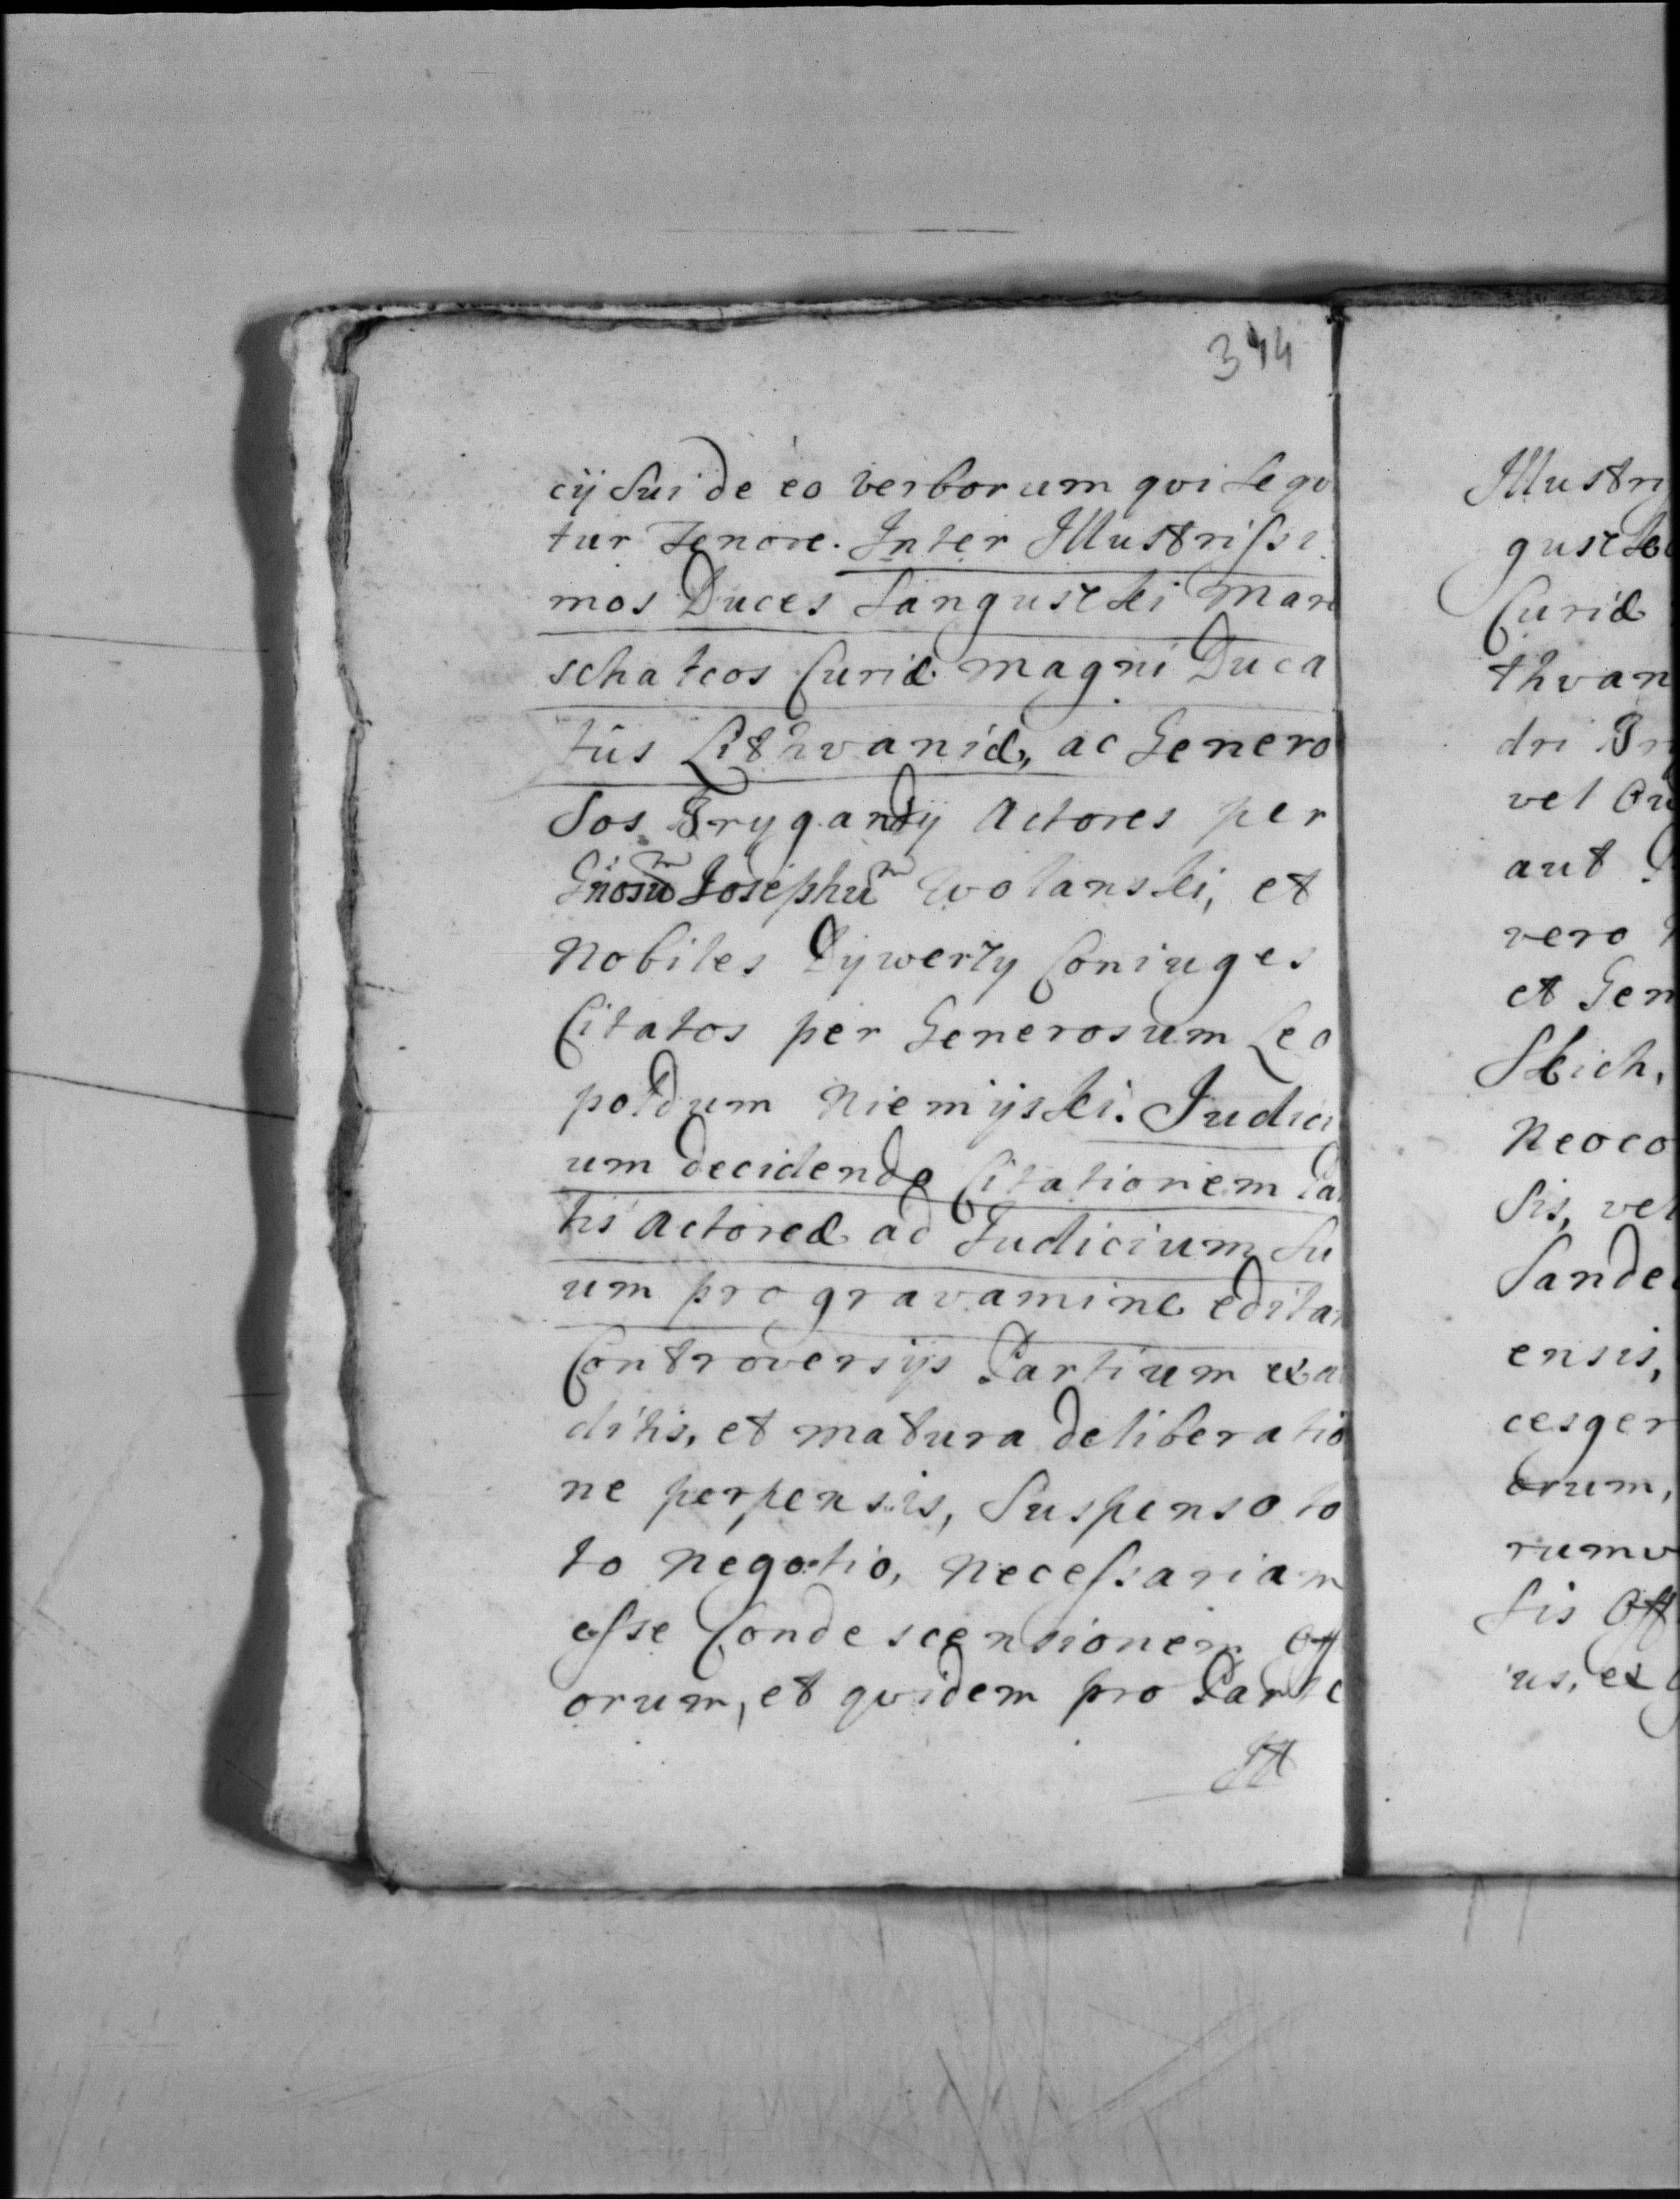 344
cij sui de eo verborum qvi sequ
tur tenore. Inter Illustrissi
mos Duces Sanguszki Mar
schalcos Curiæ Magni Duca
tûs Lithvaniæ, ac Genero
sos Brygandy Actores per
Gñosũm Josephũm Wolanski, et
Nobiles Dywerty Coniuges
Citatos per Generosum Leo
poldum Niemijski. Judici
um decidendo Citationem Par
tis Actoreæ ad Judicium Su
um pro gravamine editam
Controversijs Partium exau
ditis, et matura deliberatio
ne perpensis, Suspenso to
to negotio, necessariam
esse Condescensionem Off
orum, et qvidem pro Parte
Ill
Illustri
guszki
Curiæ
thvan
dri Bry
vel
aut
vero
et Gen
Skich,
Neoco
sis, vel
Sande
ensis,
cesger
orum,
rumv
sis Off
us, ex